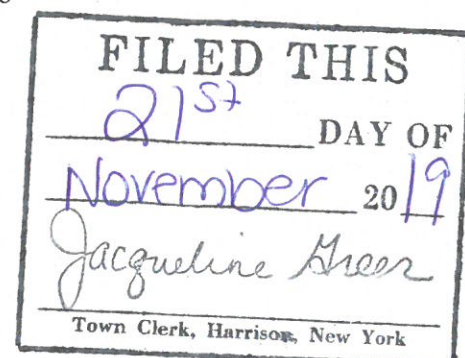 FILED THIS
21st
DAY OF
November 2019
Jacqueline Greer
Town Clerk, Harrison, New York